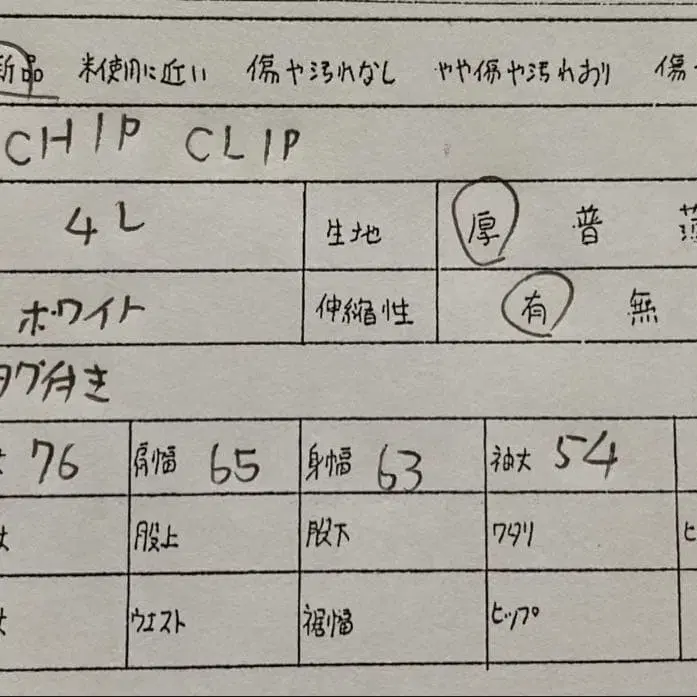 新品 未使用に近い 傷や汚れなし やや傷や汚れあり 傷
CHIP CLIP
4L 生地 厚 普 薄
ホワイト 伸縮性 有 無
タグ付き
丈 76 肩幅 65 身幅 63 袖丈 54
丈 股上 股下 ワタリ ヒ
丈 ウエスト 裾幅 ヒップ